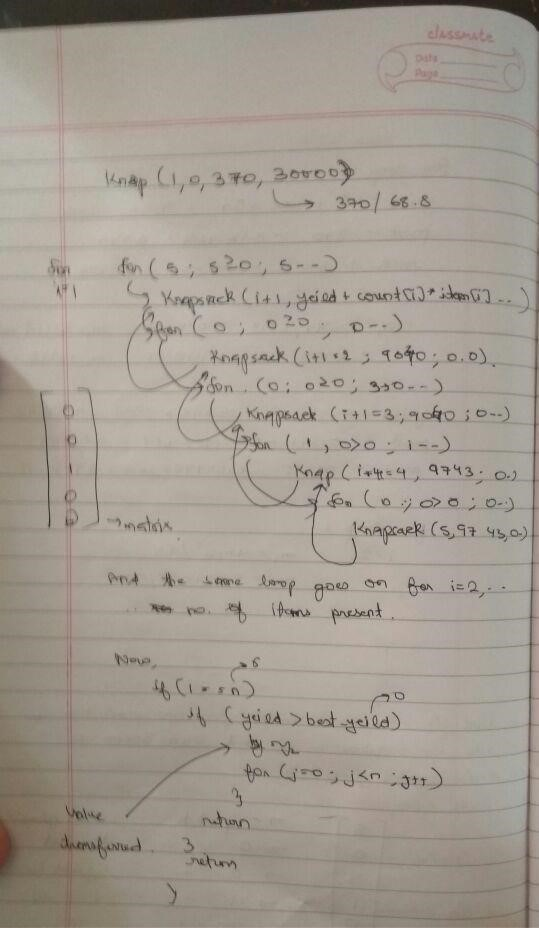 classmate
Date
Page
Knap (1, 0, 370, 30000)
→ 370/68.8
for (5 ; 5≥0 ; 5--)
i+1
Knapsack (i+1, yeild + count[i]* item[i] ..)
for ( 0 ; 0≥0 ; 0--)
Knapsack (i+1=2 ; ; 0.0).
for (0; 0≥0 ; 0--)
Knapsack (i+1=3 ; ; 0--)
for ( 1 , 0>0 ; i--)
Knap ( =4, 9743; 0.)
for (0 ; 0>0 ; 0--)
Knapsack (5, 9743, 0.)
0
0
1
0
0
→ matrix.
And the same loop goes on for i=2, ..
no. of items present.
Now,
→ 5
if (i = n)
→ 0
if (yeild > best_yeild)
for (j=0 ; j<n ; j++)
}
return
value
transferred.
}
return
}